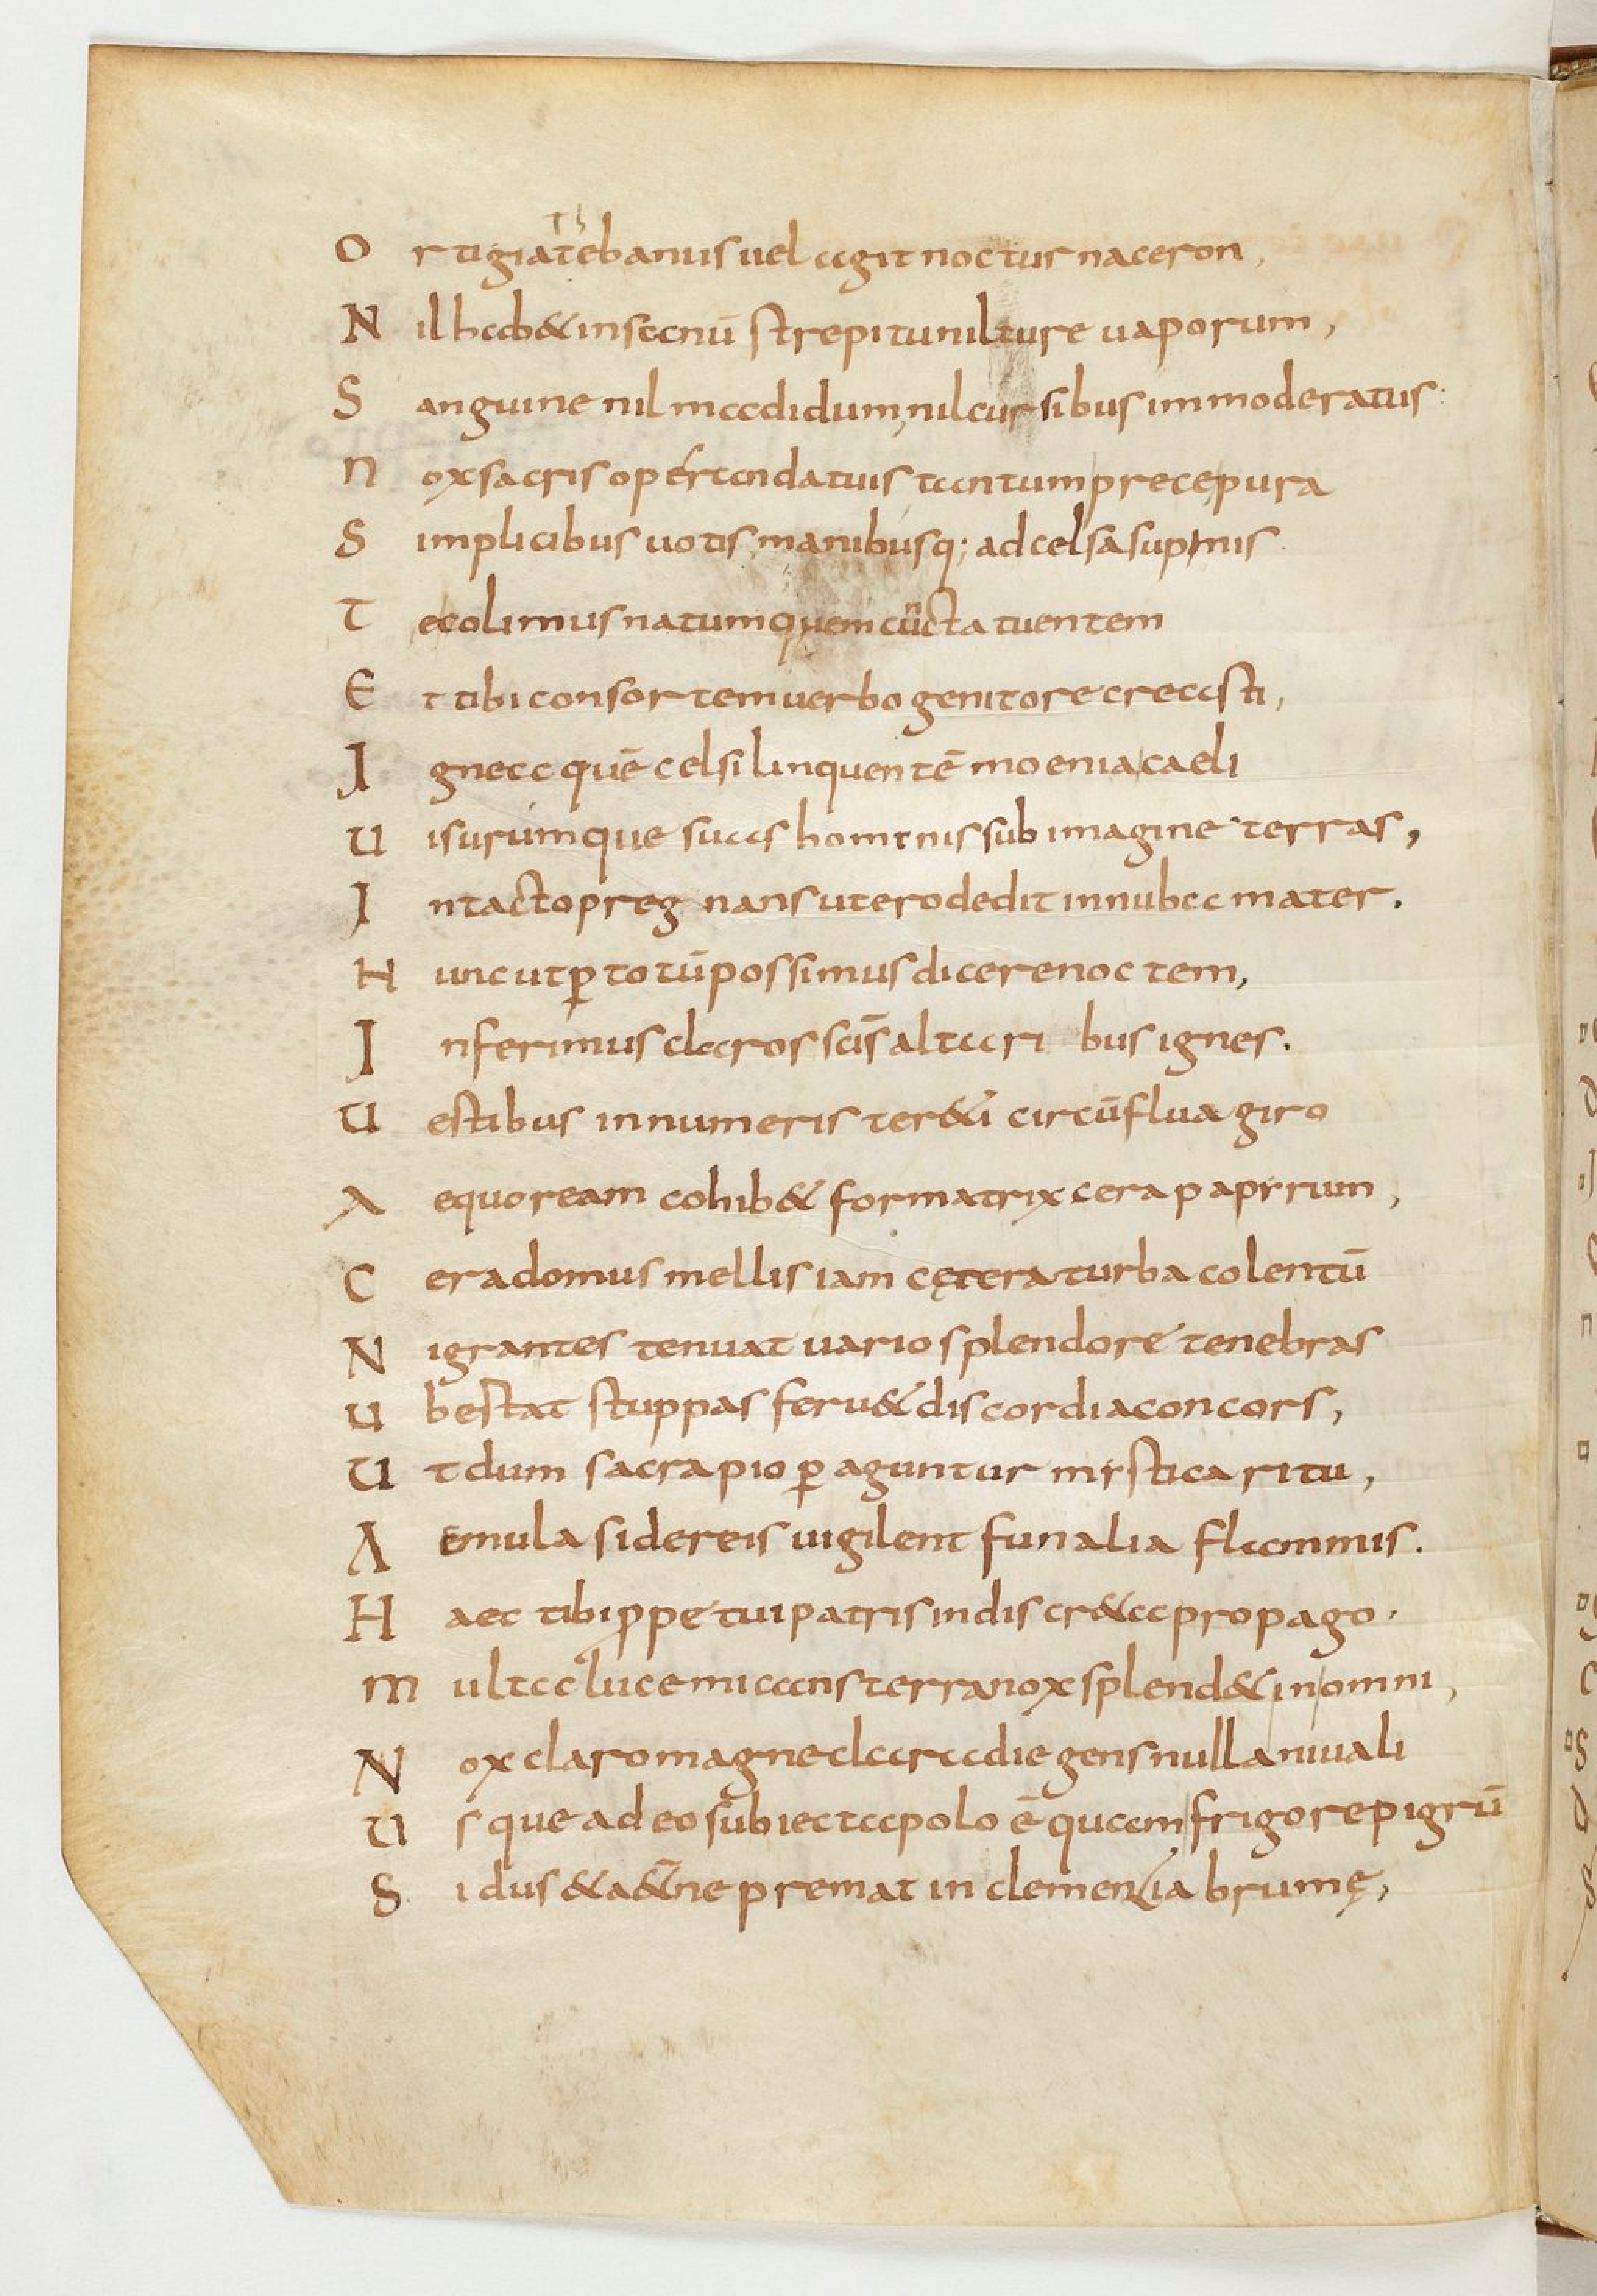 O rtigia tebanus uel agit nocturna ceron,
N il hab& insanū strepitu nil ture uaporum,
S anguine nil madidum, nil cursibus immoderatus:
N ox sacris operanda tuis tantum prece pura
S implicibus uotis, manibusq; ad celsa supinis.
T e colimus natumquem cūncta tuentem
E t tibi consortem uerbo genitore creasti,
I gnea quē celsi linquentē moenia caeli
U isurumque suas hominis sub imagine terras,
I ntacto pregnans utero dedit innuba mater.
H unc ut ꝑ totū possimus dicere noctem,
I nferimus claros scīs altaribus ignes.
U estibus innumeris ter&i circūflua giro
A equoream cohib& formatrix cera papyrum,
C era domus mellis iam cętera turba colentū
N igrantes tenuat uario splendore tenebras
U bestat stuppas feru& discordia concors,
U t dum sacra pio ꝑaguntur mystica ritu,
A emula sidereis uigilent funalia flammis.
H aec tibi ꝑpetui patris indiscr&a propago.
M ulta luce micans terra nox splend& in omni,
N ox claro magne clara die gens nulla niuali
U sque adeo subiecta polo ē quam frigore pigrū
S idus &a&ne premat inclementia brumę,